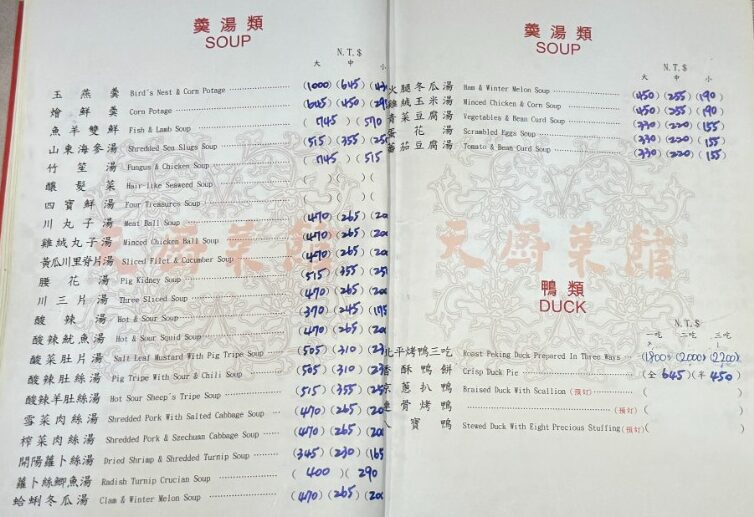 羹湯類
SOUP
N.T.$
大 中 小
玉燕羹 Bird's Nest & Corn Potage (1000)(645)
燴鮮羹 Corn Potage (645)(450)
魚羊雙鮮 Fish & Lamb Soup (745)(570
山東海參湯 Shredded Sea Slugs Soup (515)(355)
竹笙湯 Fungus & Chicken Soup (745)(515
釀髮菜 Hair-like Seaweed Soup ( )( )(
四寶鮮湯 Four Treasures Soup ( )( )(
川丸子湯 Meat Ball Soup (470)(265)
雞絨丸子湯 Minced Chicken Ball Soup (470)(265)
黃瓜川里脊片湯 Sliced Filet & Cucumber Soup (470)(265)
腰花湯 Pig Kidney Soup (515)(355)
川三片湯 Three Sliced Soup (470)(265)
酸辣湯 Hot & Sour Soup (370)(245)
酸辣魷魚湯 Hot & Sour Squid Soup (470)(265)
酸菜肚片湯 Salt Leaf Mustard With Pig Tripe Soup (505)(310)
酸辣肚絲湯 Pig Tripe With Sour & Chili Soup (505)(310)
酸辣羊肚絲湯 Hot Sour Sheep's Tripe Soup (515)(355)
雪菜肉絲湯 Shredded Pork With Salted Cabbage Soup (470)(265)
榨菜肉絲湯 Shredded Pork & Szechuan Cabbage Soup (470)(265)
開陽蘿卜絲湯 Dried Shrimp & Shredded Turnip Soup (345)(230)
蘿卜絲鯽魚湯 Radish Turnip Crucian Soup (400)(290
蛤蜊冬瓜湯 Clam & Winter Melon Soup (470)(265)
羹湯類
SOUP
N.T.$
大 中 小
火腿冬瓜湯 Ham & Winter Melon Soup (450)(255)(190)
雞絨玉米湯 Minced Chicken & Corn Soup (450)(255)(190)
青菜豆腐湯 Vegetables & Bean Curd Soup (330)(220)(155)
蛋花湯 Scrambled Eggs Soup (330)(220)(155)
蕃茄豆腐湯 Tomato & Bean Curd Soup (330)(220)(155)
天廚菜館
鴨類
DUCK
N.T.$
一吃 二吃 三吃
北平烤鴨三吃 Roast Peking Duck Prepared In Three Ways (1800)(2000)(2200)
香酥鴨餅 Crisp Duck Pie (全645)(半450)
京蔥扒鴨 Braised Duck With Scallion (預訂) (
骨烤鴨 (預訂) (
八寶鴨 Stewed Duck With Eight Precious Stuffing (預訂) (